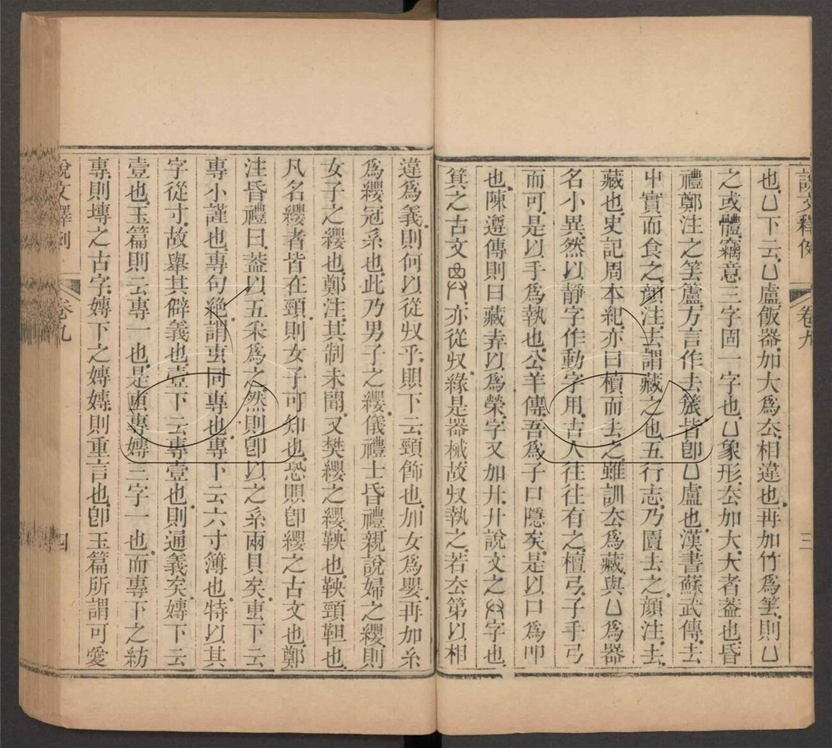 說文釋例 卷九 三
也凵下云凵盧飯器加大爲厺相違也再加竹爲筶則凵
之或體竊意三字固一字也凵象形厺加大大者蓋也昏
禮鄭注之筶蘆方言作去簇皆卽凵盧也漢書蘇武傳去
屮實而食之顔注去謂藏之也五行志乃匵去之顔注去
藏也史記周本紀亦曰櫝而去之雖訓厺爲藏與凵爲器
名小異然以靜字作動字用古人往往有之檀弓子手弓
而可是以手爲執也公羊傳吾爲子口隱矣是以口爲叩
也陳遵傳則曰藏弆以爲榮字又加廾廾說文之𠬞字也
箕之古文 亦從𠬞緣是器械故𠬞執之若厺第以相
違爲義則何以從𠬞乎賏下云頸飾也加女爲嬰再加糸
爲纓冠系也此乃男子之纓儀禮士昏禮親說婦之纓則
女子之纓也鄭注其制未聞又樊纓之纓鞅也鞅頸靼也
凡名纓者皆在頸則女子可知也恐賏卽纓之古文也鄭
注昏禮曰葢以五采爲之然則卽以之系兩貝矣叀下云
專小謹也專句絶謂叀同專也專下云六寸簿也特以其
字從寸故舉其僻義也壹下云專壹也則通義矣嫥下云
壹也玉篇則云專一也是叀專嫥三字一也而專下之紡
專則塼之古字嫥下之嫥嫥則重言也卽玉篇所謂可愛
說文釋例 卷九 四